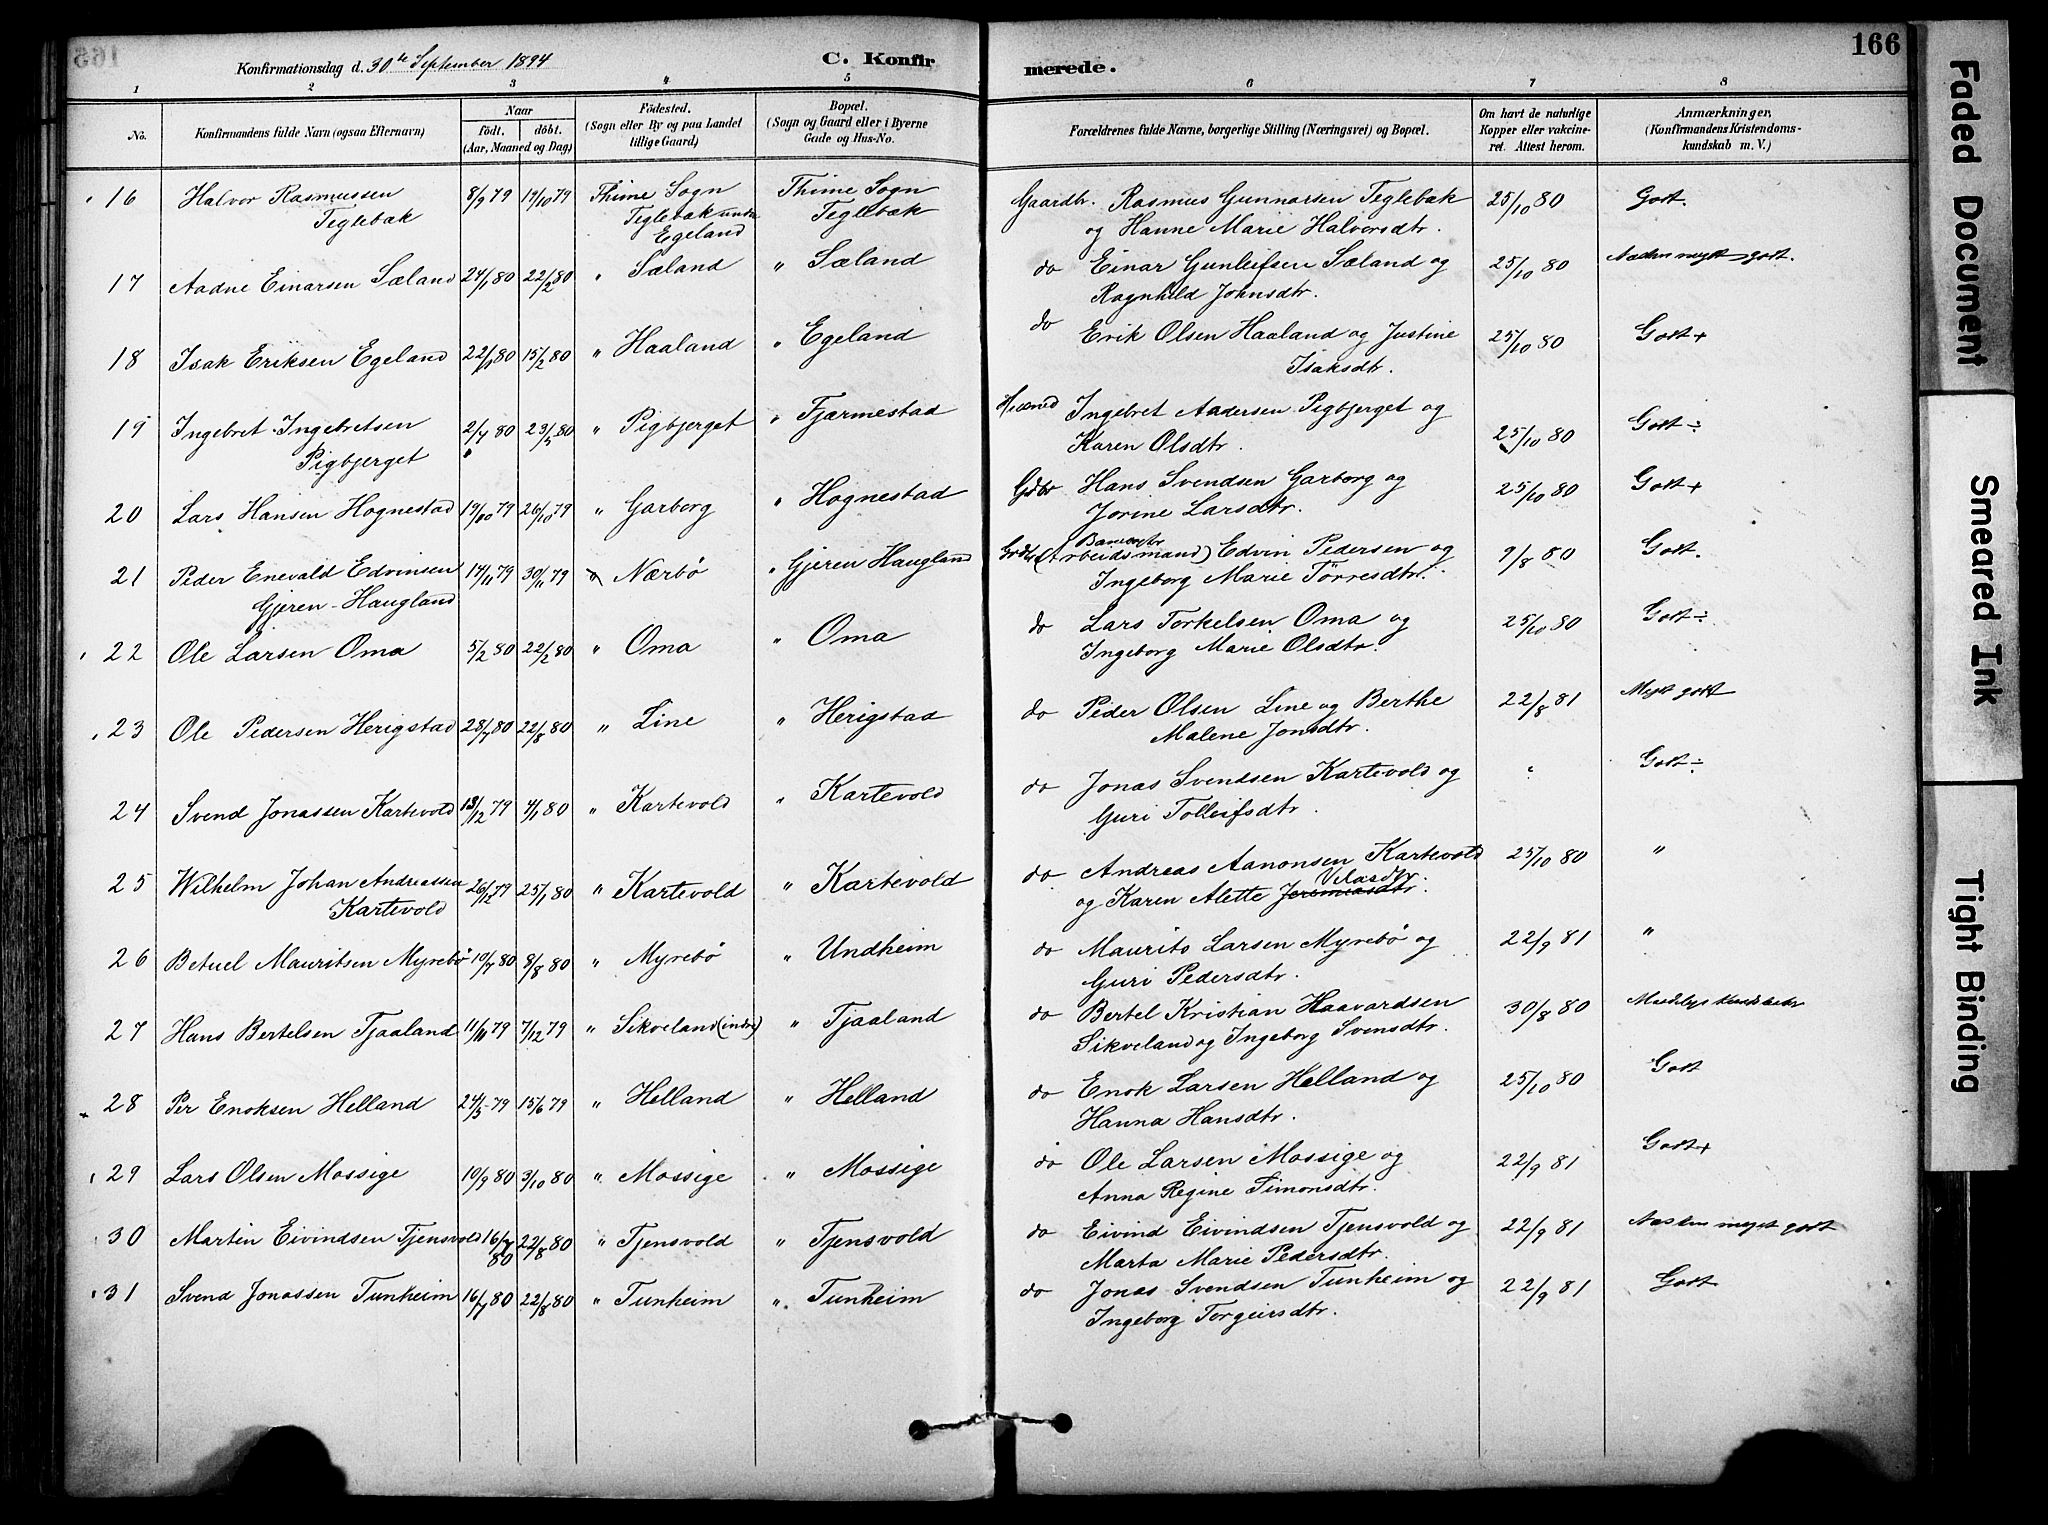 166
Konfirmationsdag d. 30te September 1894
C. Konfirmerede.
1 2 3 4 5 6 7 8
No. Konfirmandens fulde Navn (ogsaa Efternavn) Naar født. døbt. (Aar, Maaned og Dag) Fødested. (Sogn eller By og paa Landet tillige Gaard) Bopæl. (Sogn og Gaard eller i Byerne Gade og Hus-No. Forældrenes fulde Navne, borgerlige Stilling (Næringsvei) og Bopæl. Om havt de naturlige Kopper eller vakcineret. Attest herom. Anmærkninger, (Konfirmandens Kristendomskundskab m. V.)
16 Halvor Rasmussen Teglebæk 8/9 79 19/10 79 Thime Sogn Teglebæk under Egeland Thime Sogn Teglebæk Gaardbr. Rasmus Gunnarsen Teglebæk og Hanne Marie Halvorsdtr. 25/10 80 Godt.
17 Aadne Einarsen Sæland 24/1 80 22/2 80 " Sæland " Sæland do Einar Gunleifsen Sæland og Ragnhild Johnsdtr. 25/10 80 godt.
18 Isak Eriksen Egeland 22/1 80 15/2 80 " Haaland " Egeland do Erik Olsen Haaland og Justine Isaksdtr. 25/10 80 Godt+
19 Ingebret Ingebretsen Pigbjerget 80 80 " Pigbjerget " Fjærmestad Ingebret Aadersen Pigbjerget og Karen Olsdtr. 25/10 80 Godt÷
20 Lars Hansen Hognestad 19/10 79 26/10 79 " Garborg " Hognestad Gdbr Hans Svendsen Garborg og Jorine Larsdtr. 25/10 80 Godt+
21 Peder Enevald Edvinsen Gjeren-Haugland 14/11 79 30/11 79 Nærbø " Gjeren Haugland (Arbeidsmand) Edvin Pedersen og Ingeborg Marie Tørresdtr. 9/8 80 Godt.
22 Ole Larsen Oma 5/2 80 22/2 80 " Oma " Oma do Lars Torkelsen Oma og Ingeborg Marie Olsdtr. 25/10 80 Godt÷
23 Ole Pedersen Herigstad 28/7 80 22/8 80 " Line " Herigstad do Peder Olsen Line og Berthe Malene Jonsdtr. 22/8 81 godt
24 Svend Jonassen Kartevold 13/12 79 4/1 80 " Kartevold " Kartevold do Jonas Svendsen Kartevold og Guri Tolleifsdtr. " Godt÷
25 Wilhelm Johan Andreassen Kartevold 26/12 79 25/1 80 " Kartevold " Kartevold do Andreas Aanonsen Kartevold og Karen Alette Jeremiasdtr. 25/10 80 "
26 Betuel Mauritsen Myrebø 10/7 80 8/8 80 " Myrebø " Undheim do Maurits Larsen Myrebø og Guri Pedersdtr. 22/9 81 "
27 Hans Bertelsen Tjaaland 11/11 79 7/12 79 " Sikveland (indre) " Tjaaland do Bertel Kristian Haavardsen Sikveland og Ingeborg Svensdtr. 30/8 80
28 Per Enoksen Helland 24/5 79 15/6 79 " Helland " Helland do Enok Larsen Helland og Hanna Hansdtr. 25/10 80 Godt
29 Lars Olsen Mossige 10/9 80 3/10 80 " Mossige " Mossige do Ole Larsen Mossige og Anna Regine Simonsdtr. 22/9 81 Godt+
30 Martin Eivindsen Tjensvold 16/7 80 22/8 80 " Tjensvold " Tjensvold do Eivind Eivindsen Tjensvold og Marta Marie Pedersdtr. 22/9 81 Næsten meget godt
31 Svend Jonassen Tunheim 16/7 80 22/8 80 " Tunheim " Tunheim do Jonas Svendsen Tunheim og Ingeborg Torgeirsdtr. 22/9 81 Godt
Faded Document
Smeared Ink
Tight Binding